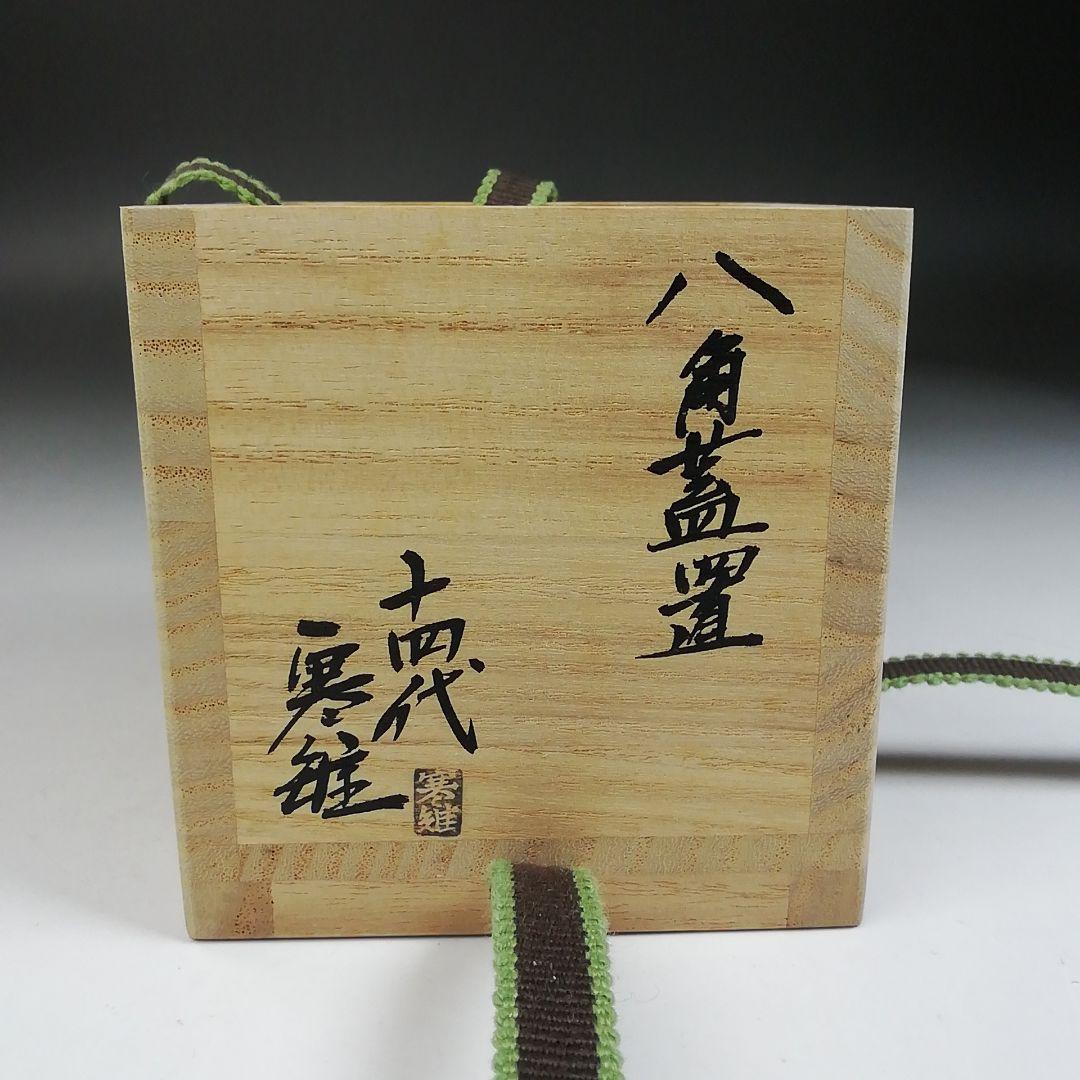 八角蓋置
十四代
寒雉
寒雉